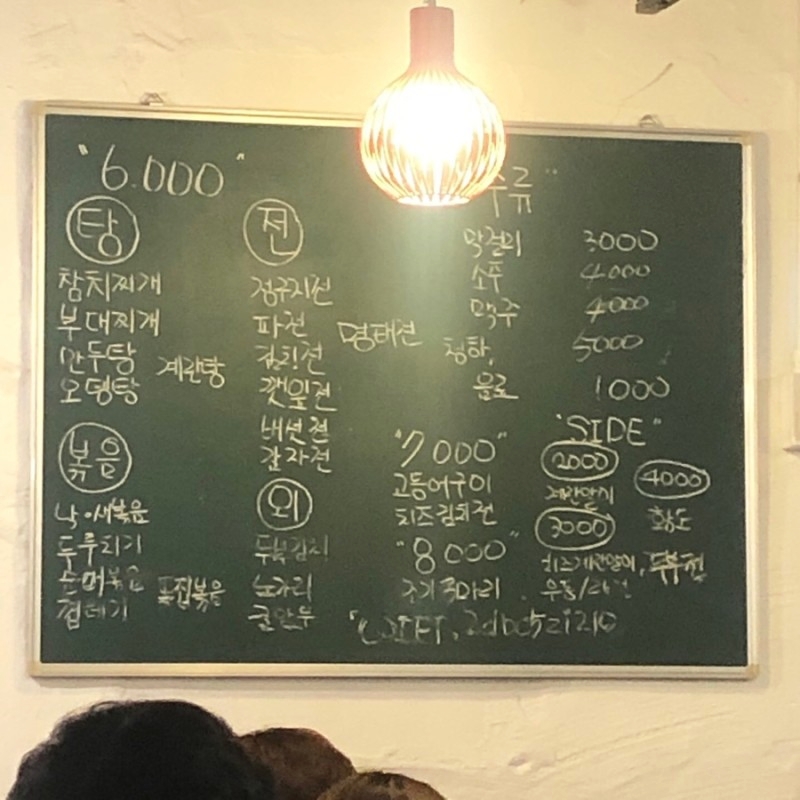 "6.000"
탕
참치찌개
부대찌개
만두탕
계란탕
오뎅탕
볶음
낙·새볶음
두루치기
껍데기
전
정구지전
파전
명태전
김치전
깻잎전
버섯전
감자전
외
두부김치
노가리
류"
막걸리 3000
소주 4000
맥주 4000
청하, 5000
음료 1000
"7000"
고등어구이
치즈김치전
"8000"
조기 3마리
"SIDE"
2000
계란말이
3000
치즈계란말이,
우동/라면
4000
황도